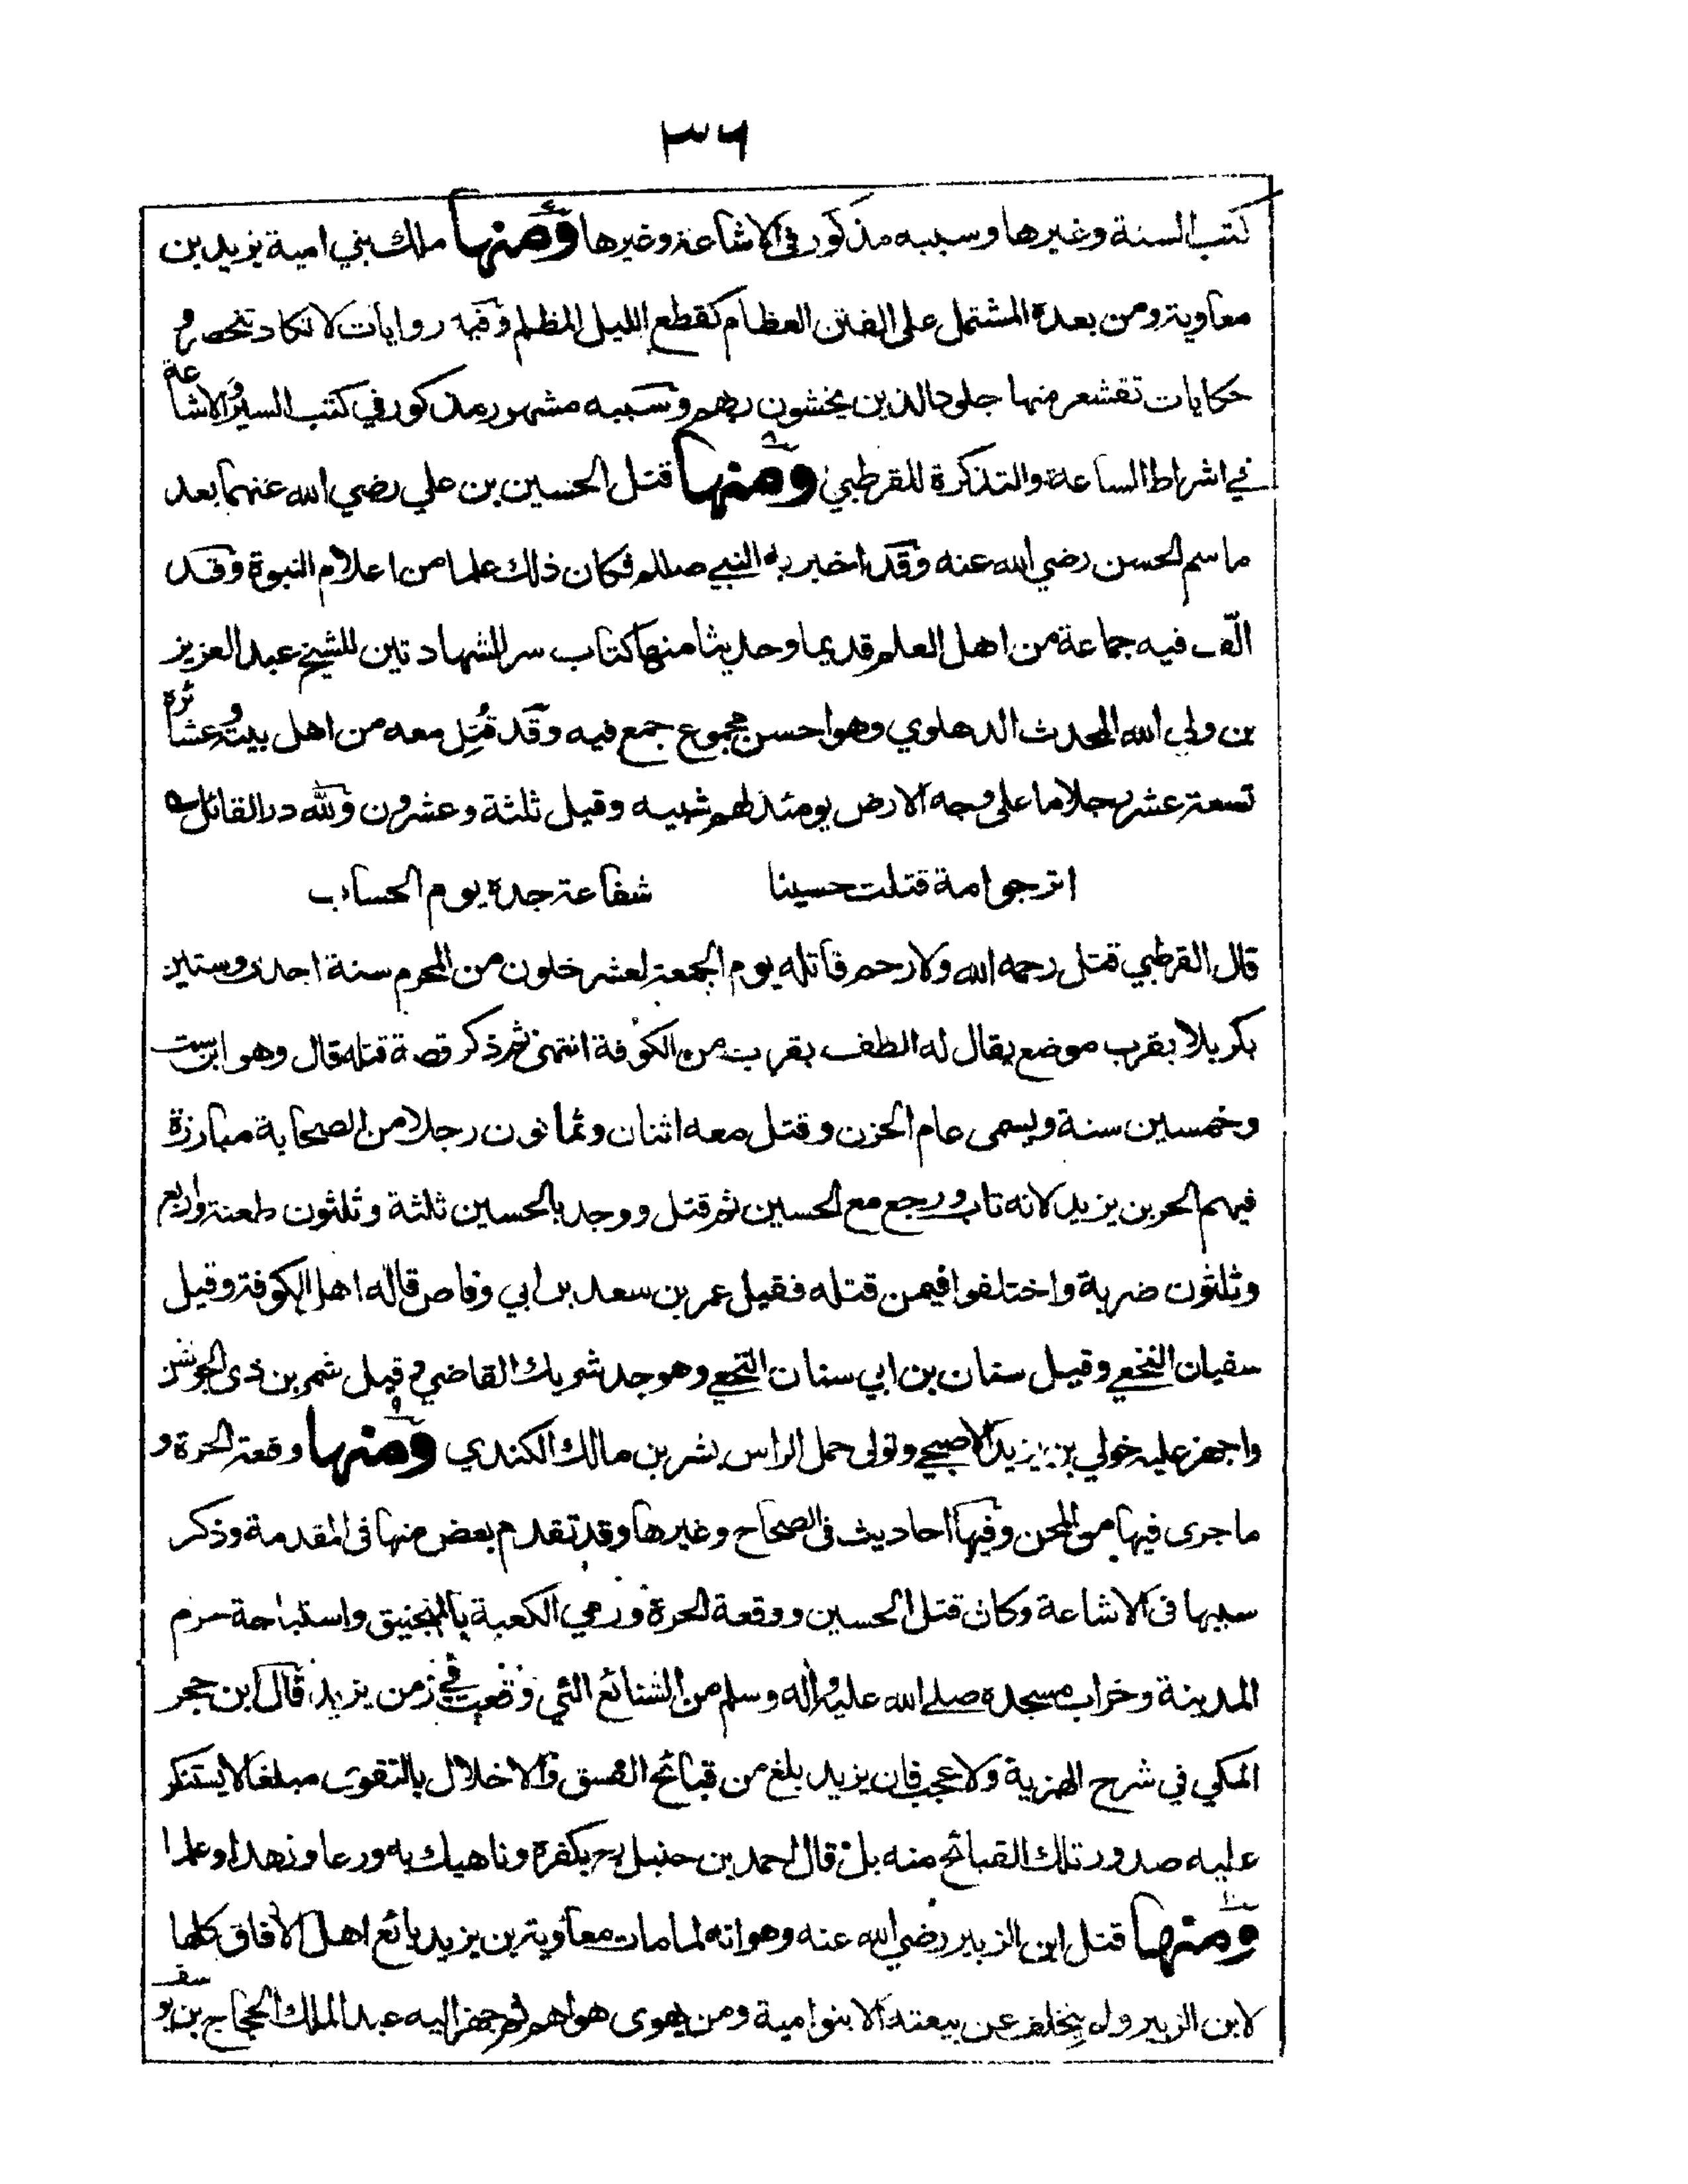 ٣٦
كتب السنة وغيرها وسببه مذكور في الاشاعة وغيرها ومنها ملك بني امية يزيد بن
معاوية ومن بعده المشتمل على الفتن العظام كقطع الليل المظلم وفيه روايات لا تكاد تنحصر و
حكايات تقشعر منها جلود الذين يخشون ربهم وسببه مشهور مذكور في كتب السير والاشاعة
في اشراط الساعة والتذكرة للقرطبي ومنها قتل الحسين بن علي رضي الله عنهما بعد
ما سم الحسن رضي الله عنه وقد اخبر به النبي صللم فكان ذلك علما من اعلام النبوة وقد
الّف فيه جماعة من اهل العلم قديما وحديثا منها كتاب سر الشهادتين للشيخ عبد العزيز
بن ولي الله المحدث الدهلوي وهو احسن مجموع جمع فيه وقد قُتِل معه من اهل بيته وعشائره
تسعة عشر رجلا ما على وجه الارض يومئذ لهم شبيه وقيل ثلثة وعشرون ولله در القائل
اترجو امة قتلت حسينا شفاعة جده يوم الحساب
قال القرطبي قتل رحمه الله ولا رحم قاتله يوم الجمعة لعشر خلون من المحرم سنة احدى وستين
بكربلا بقرب موضع يقال له الطف بقرب من الكوفة انتهى ثم ذكر قصة قتله قال وهو ابن ست
وخمسين سنة ويسمى عام الحزن وقتل معه اثنان وثمانون رجلا من الصحابة مبارزة
فيهم الحر بن يزيد لانه تاب ورجع مع الحسين ثم قتل ووجد بالحسين ثلثة وثلثون طعنة واربع
وثلثون ضربة واختلفوا فيمن قتله فقيل عمر بن سعد بن ابي وقاص قاله اهل الكوفة وقيل
سفيان النخعي وقيل سنان بن ابي سنان النخعي وهو جد شريك القاضي وقيل شمر بن ذى الجوشن
واجهز عليه خولي بن يزيد الاصبحي وتولى حمل الراس بشر بن مالك الكندي ومنها وقعة الحرة و
ما جرى فيها من المحن وفيها احاديث في الصحاح وغيرها وقد تقدم بعض منها فى المقدمة وذكر
سببها فى الاشاعة وكان قتل الحسين ووقعة الحرة ورمي الكعبة بالمنجنيق واستباحة حرم
المدينة وخراب مسجده صلے الله عليه واله وسلم من الشنائع التي وقعت في زمن يزيد قال ابن حجر
المكي في شرح الهمزية ولا عجب فان يزيد بلغ من قبائح الفسق والاخلال بالتقوى مبلغا لا يستنكر
عليه صدور تلك القبائح منه بل قال احمد بن حنبل رح بكفره وناهيك به ورعا وزهدا وعلما
ومنها قتل ابن الزبير رضي الله عنه وهو انه لما مات معاوية بن يزيد بائع اهل الافاق كلها
لابن الزبير ولم يتخلف عن بيعته الا بنو امية ومن يهوى هواهم ثم جهز اليه عبد الملك الحجاج بن يوسف